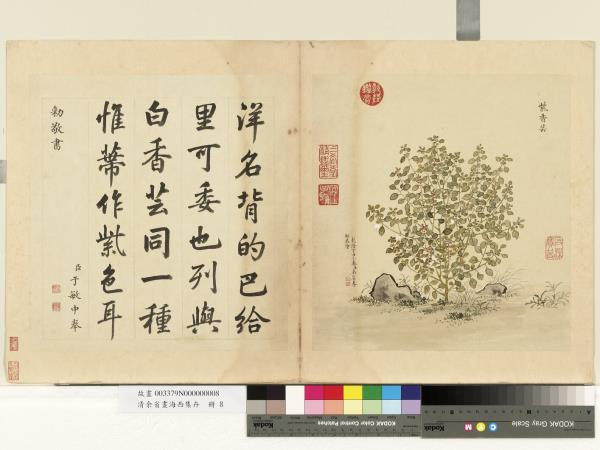 洋名揹的巴給
里可委也列與
白香芸同一種
惟蒂作紫色耳
臣于敏中奉
勅敬書
紫香芸
故畫 003379N000000008
清余省畫海西集卉 冊 8
KODAK Color Control Patches
KODAK Gray Scale
C Y M